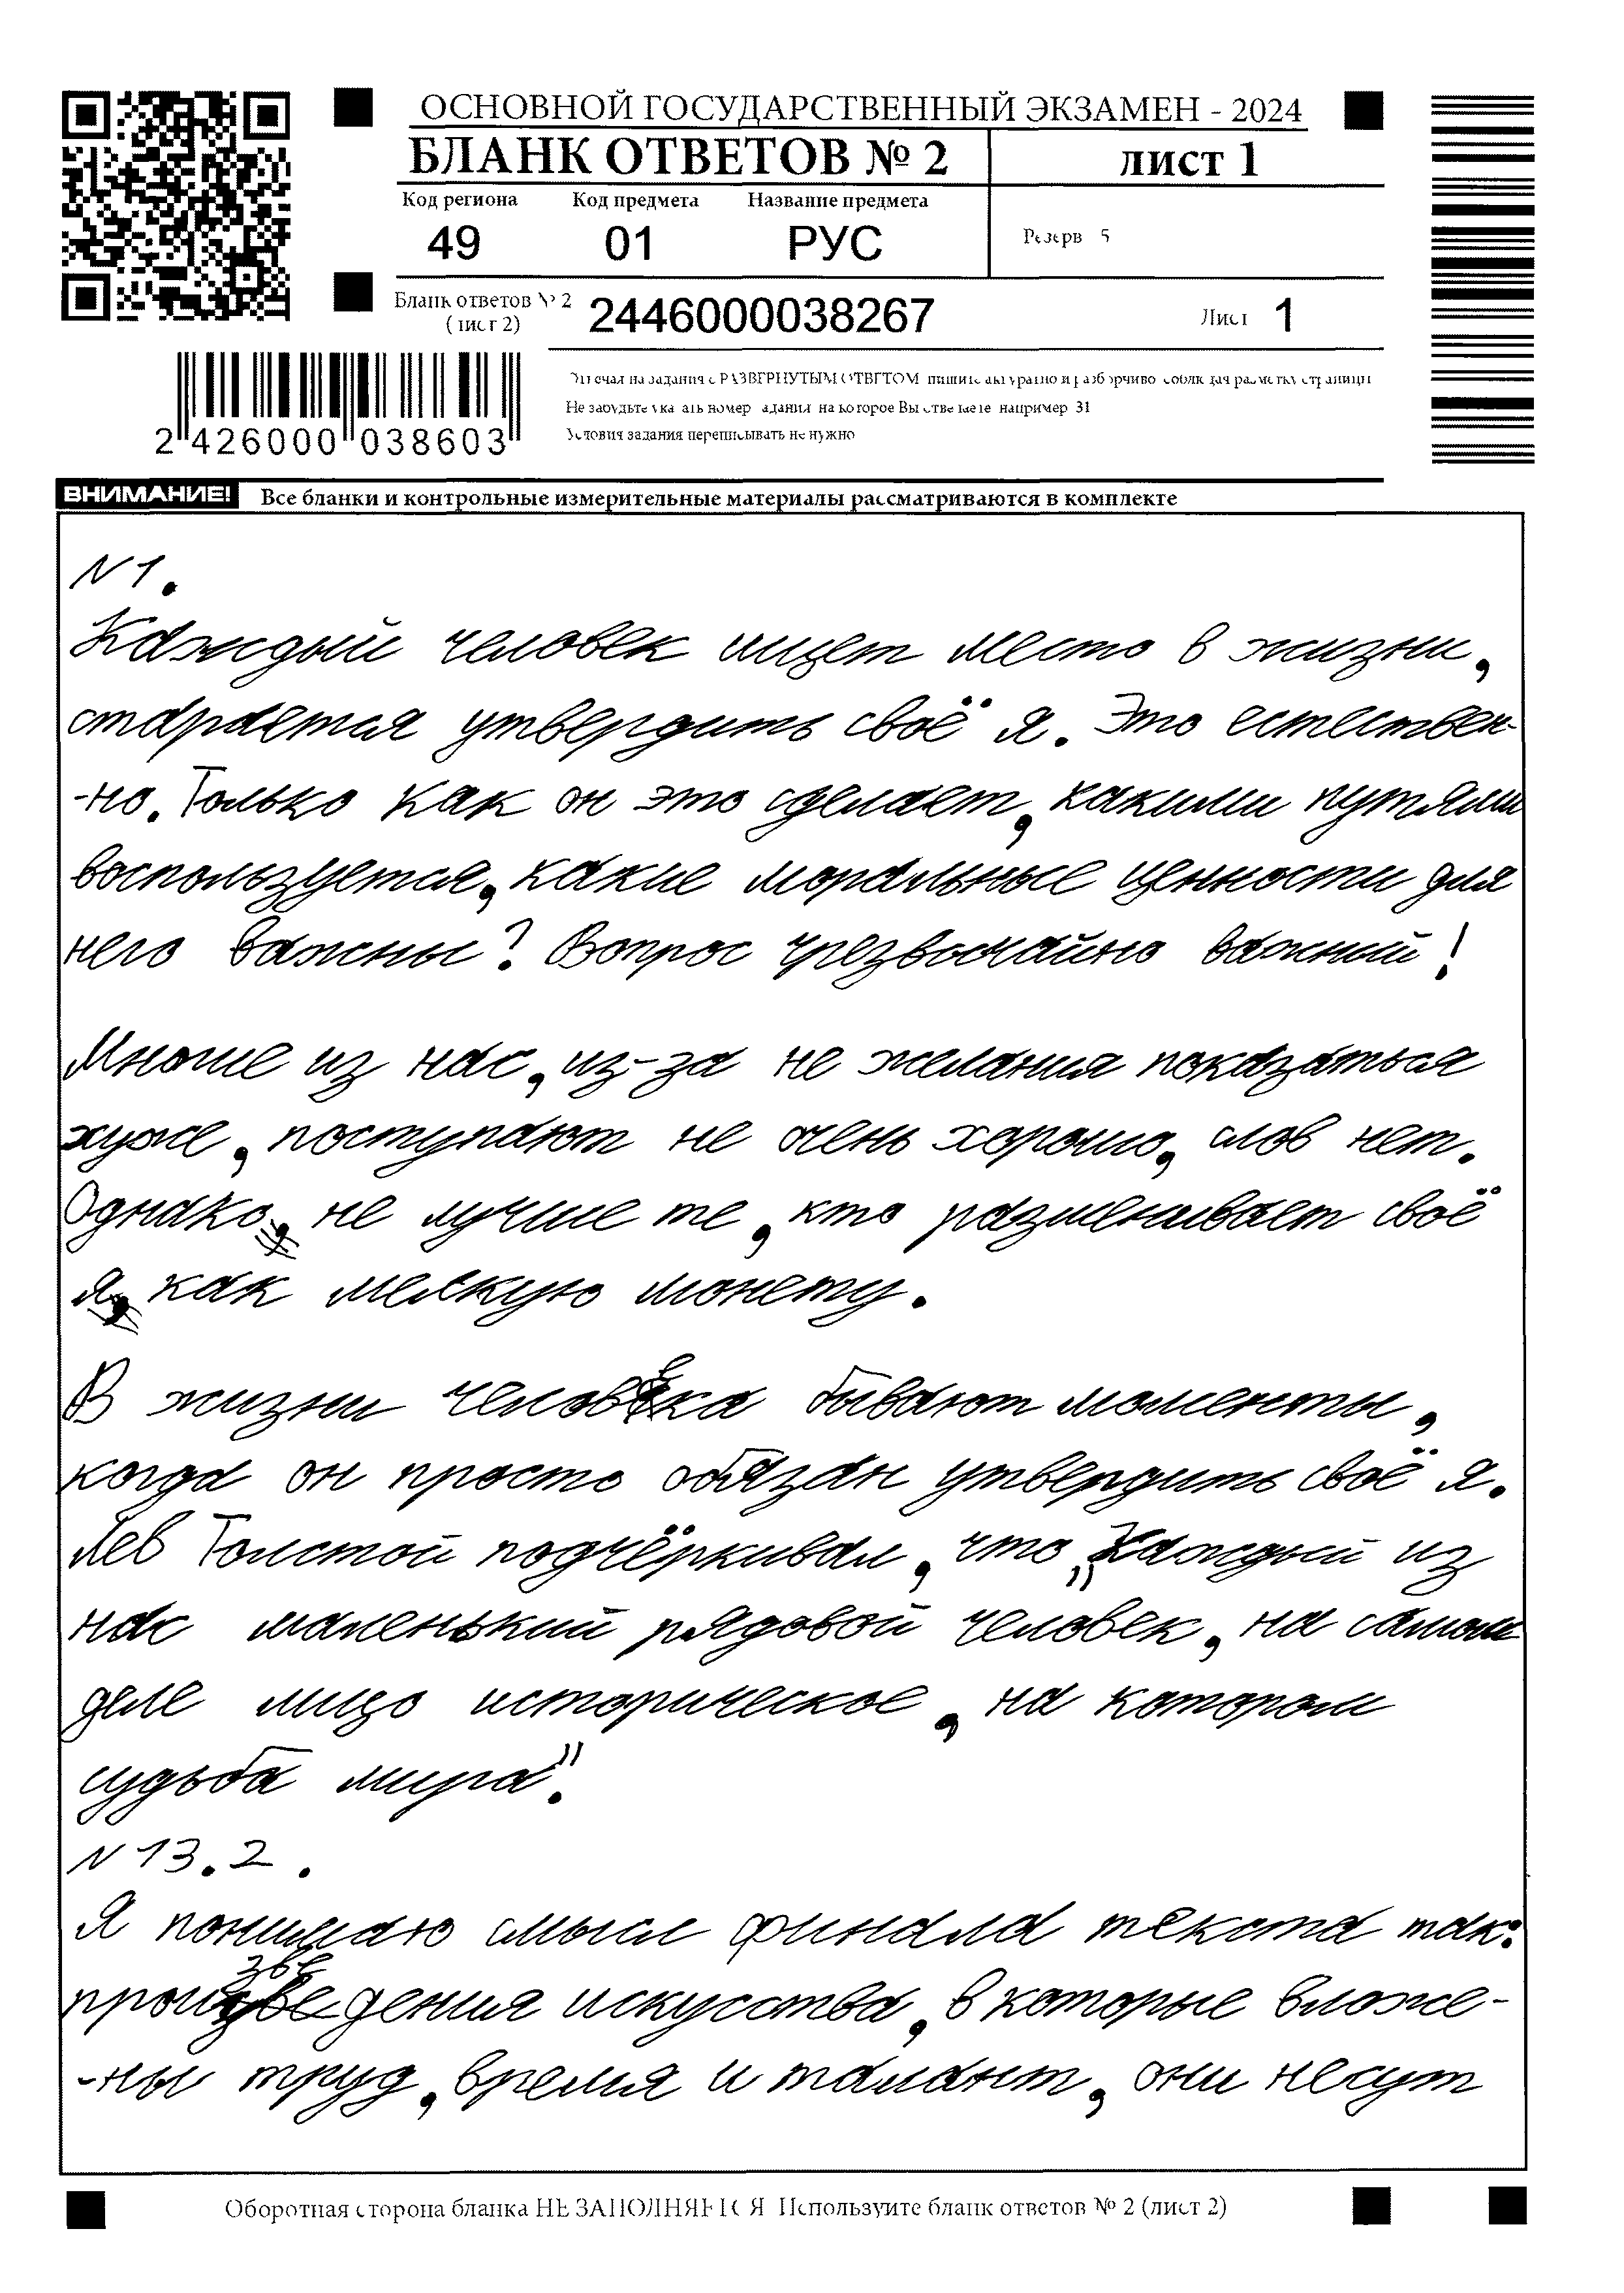 ОСНОВНОЙ ГОСУДАРСТВЕННЫЙ ЭКЗАМЕН - 2024
БЛАНК ОТВЕТОВ № 2
лист 1
Код региона Код предмета Название предмета
49 01 РУС
Резерв 5
Бланк ответов № 2
(лист 2)
2446000038267
Лист 1
2 426000 038603
Отвечая на задания с РАЗВЕРНУТЫМ ОТВЕТОМ пишите аккуратно и разборчиво соблюдая разметку страницы
Не забудьте указать номер задания на которое Вы отвечаете например 31
Условия задания переписывать не нужно
ВНИМАНИЕ! Все бланки и контрольные измерительные материалы рассматриваются в комплекте
N 1.
Каждый человек ищет место в жизни,
старается утвердить своё я. Это естествен-
-но. Только как он это сделает, какими путями
воспользуется, какие моральные ценности для
него важны? Вопрос чрезвычайно важный!
Многие из нас, из-за не желания показаться
хуже, поступают не очень хорошо, слов нет.
Однако не лучше те, кто разменивает своё
я как мелкую монету.
В жизни человека бывают моменты,
когда он просто обязан утвердить своё я.
Лев Толстой подчёркивал, что „Каждый из
нас маленький рядовой человек, на самом
деле лицо историческое, на котором
судьба мира".
N 13.2.
Я понимаю смысл финала текста так:
произведения искусства, в которые вложе-
-ны труд, время и талант, они несут
Оборотная сторона бланка НЕ ЗАПОЛНЯЕТСЯ Используйте бланк ответов № 2 (лист 2)